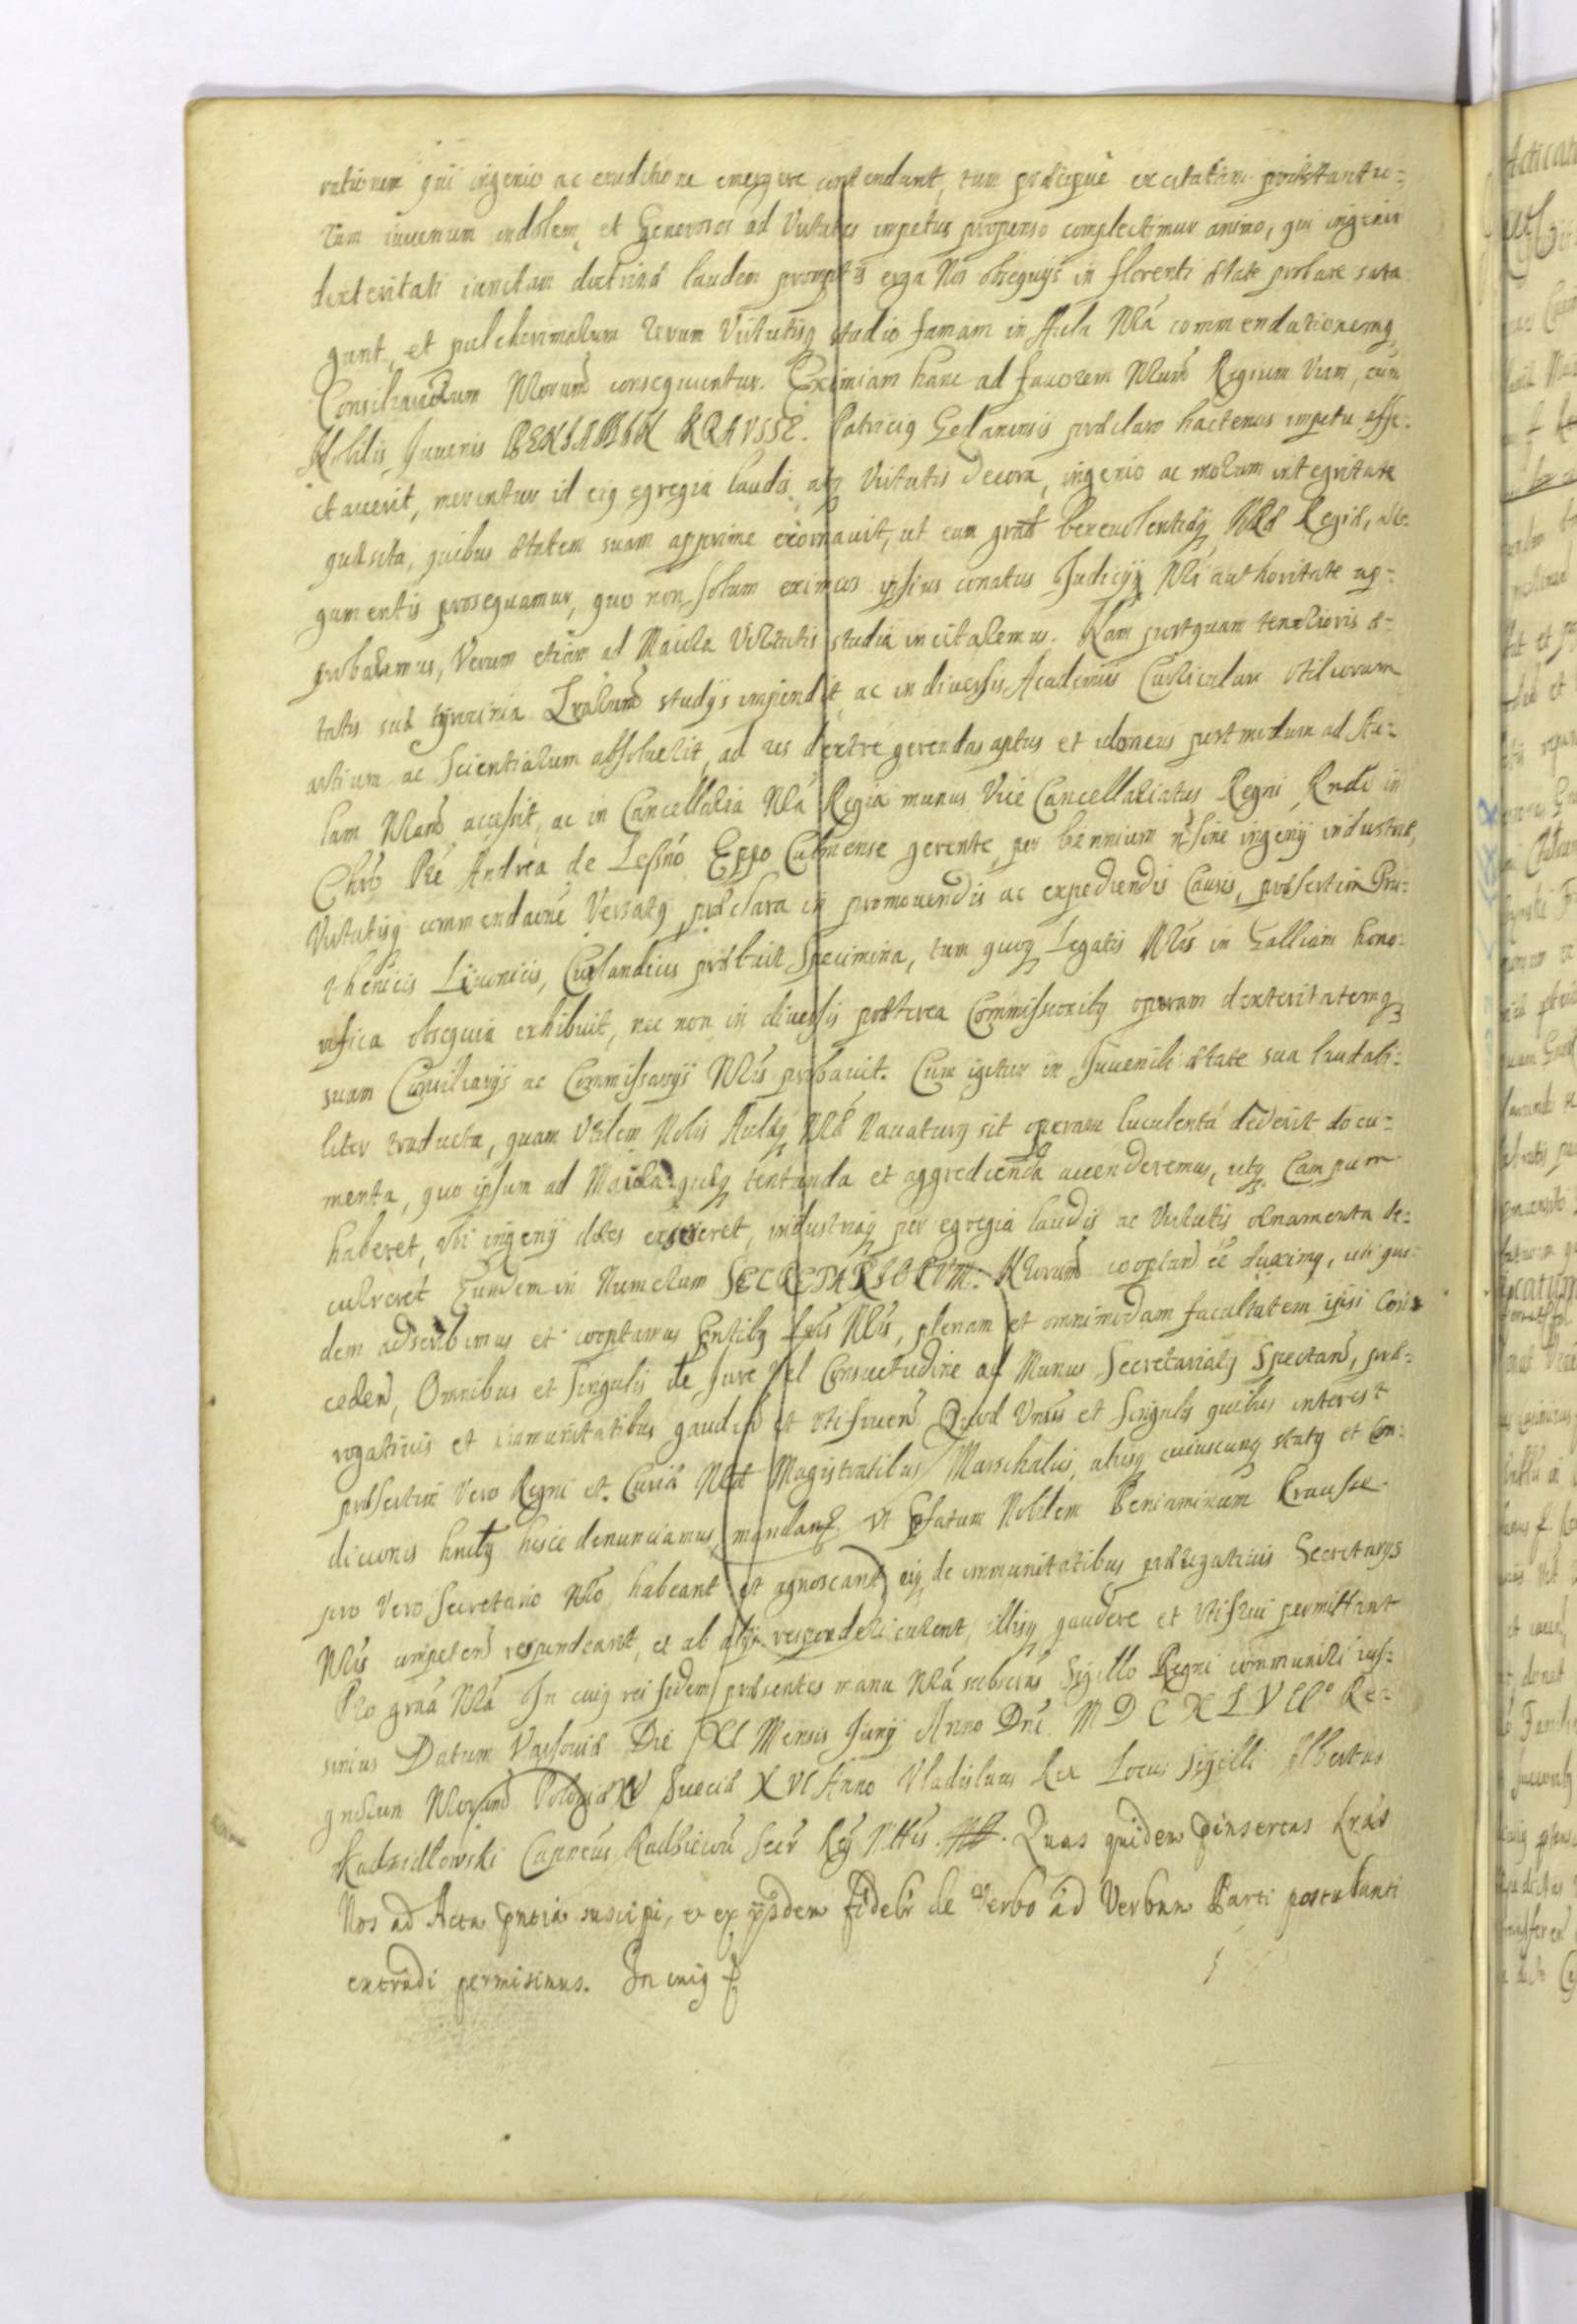 rationem qui ingenio ac eruditione emergere contendunt, tum præcipue excitatam præstantio-
rum iuvenum indolem et Generosos ad Virtutes impetus propenso complectimur animo, qui ingenii
dexteritati iunctam doctrinæ laudem promptis erga Nos obsequijs in florenti ætate probare sata
gunt, et pulcherrimarum rerum Virtutisq studio famam in Aula Nrã commendationemq
Consiliariorum Nrorum consequuntur. Eximiam hanc ad favorem Nrum Regium Viam, cum
Nobilis Juvenis BENIAMIN KRAVSSE. Patricig Gedanensis præclaro hactenus impetu affe-
ctaverit, merentur id eig egregia laudis, atq Virtutis decora, ingenio ac morum integritate
quæsita, quibus ætatem suam apprime exornavit, ut eum grãt benevolentiæq Nræ Regiæ, au-
gumentis prosequamur, quo non solum eximios ipsius conatus Judicijq Nri authoritate ap-
probaremus, Verum etiam ad Maiora Virtutis studia incitaremus. Nam postquam tenerioris æ-
tatis suæ tyrocinia Lrarum studys impendit, ac in diversis Academiis Curriculum Utiliorum
artium ac scientiarum absolverit, ad res dextre gerendas aptus et idoneus postmodum ad Au-
lam Nram accessit, ac in Cancellaria Nrã Regia munus Vice Cancellariatus Regni Rndi in
Chro Pre Andrea de Leszno Eppo Culmense gerente, per biennium ñ sine ingenij industriæ,
Virtutisq commendaõne Versatg præclara in promovendis ac expediendis Causis, præsertim Pru-
thenicis Livonicis, Curlandicis præbuit Specimina, tum quoq Legatis Nris in Galliam hono-
rifica obsequia exhibuit, nec non in diversis præterea Commissionibg operam dexteritatemq
suam Consiliarijs ac Commissarijs Nris probavit. Cum igitur in Juvenili ætate sua laudabi-
liter traducta, quam Utilem Nobis Aulæq Nræ Navaturg sit operam luculentã dederit docu-
menta, quo ipsum ad Maiora quæq tentanda et aggredienda accenderemus, utq Campum
haberet, ubi ingenij dotes exereret, industriaq per egregia laudis ac Virtutis ornamenta de-
curreret Eundem in Numerum SECRETARIORUM. Nrorum cooptand ee duximg, uti qui-
dem adscribimus et cooptamus pntibg Lris Nris, plenam et omnimodam facultatem ipsi con-
ceden, Omnibus et singulis de Jure Vel Consuetudine ad Munus Secretariatg Spectand, præ-
rogativis et immunitatibus gaudend et Utifruend. Quod Unis et Singulis quibus interest
præsertim Vero Regni et Curiæ Nræ Magistratibus, Marschalis, alijsq cuiuscunq statg et con-
dicionis hnitbg hisce denunciamus, mandamg. Ut pfatum Nobilem Beniaminum Krausse
pro Vero Secretario Nro habeant et agnoscant, eig de immunitatibus prærogativis Secretarijs
Nris competend respondeant, et ab alijs responderi curent, illisq gaudere et Utifrui permittant
Pro grãa Nrã In cuig rei fidem præsentes manu Nrã subscras Sigillo Regni communiri ius-
simus Datum Varsoviæ Die XI Mensis Junij Anno Dni. MDCXLVII° Re-
gnorum Nrorum Poloniæ XV Sueciæ XVI Anno Vladislaus Rex Locus Sigilli Albertus
Kadzidlowski Secr Quas quidem pinsertas Lrãs
Nos ad Acta pntia suscipi, et ex ijsdem fideli de Verbo ad Verbum Parti postulanti
extradi permisimus. In cuig